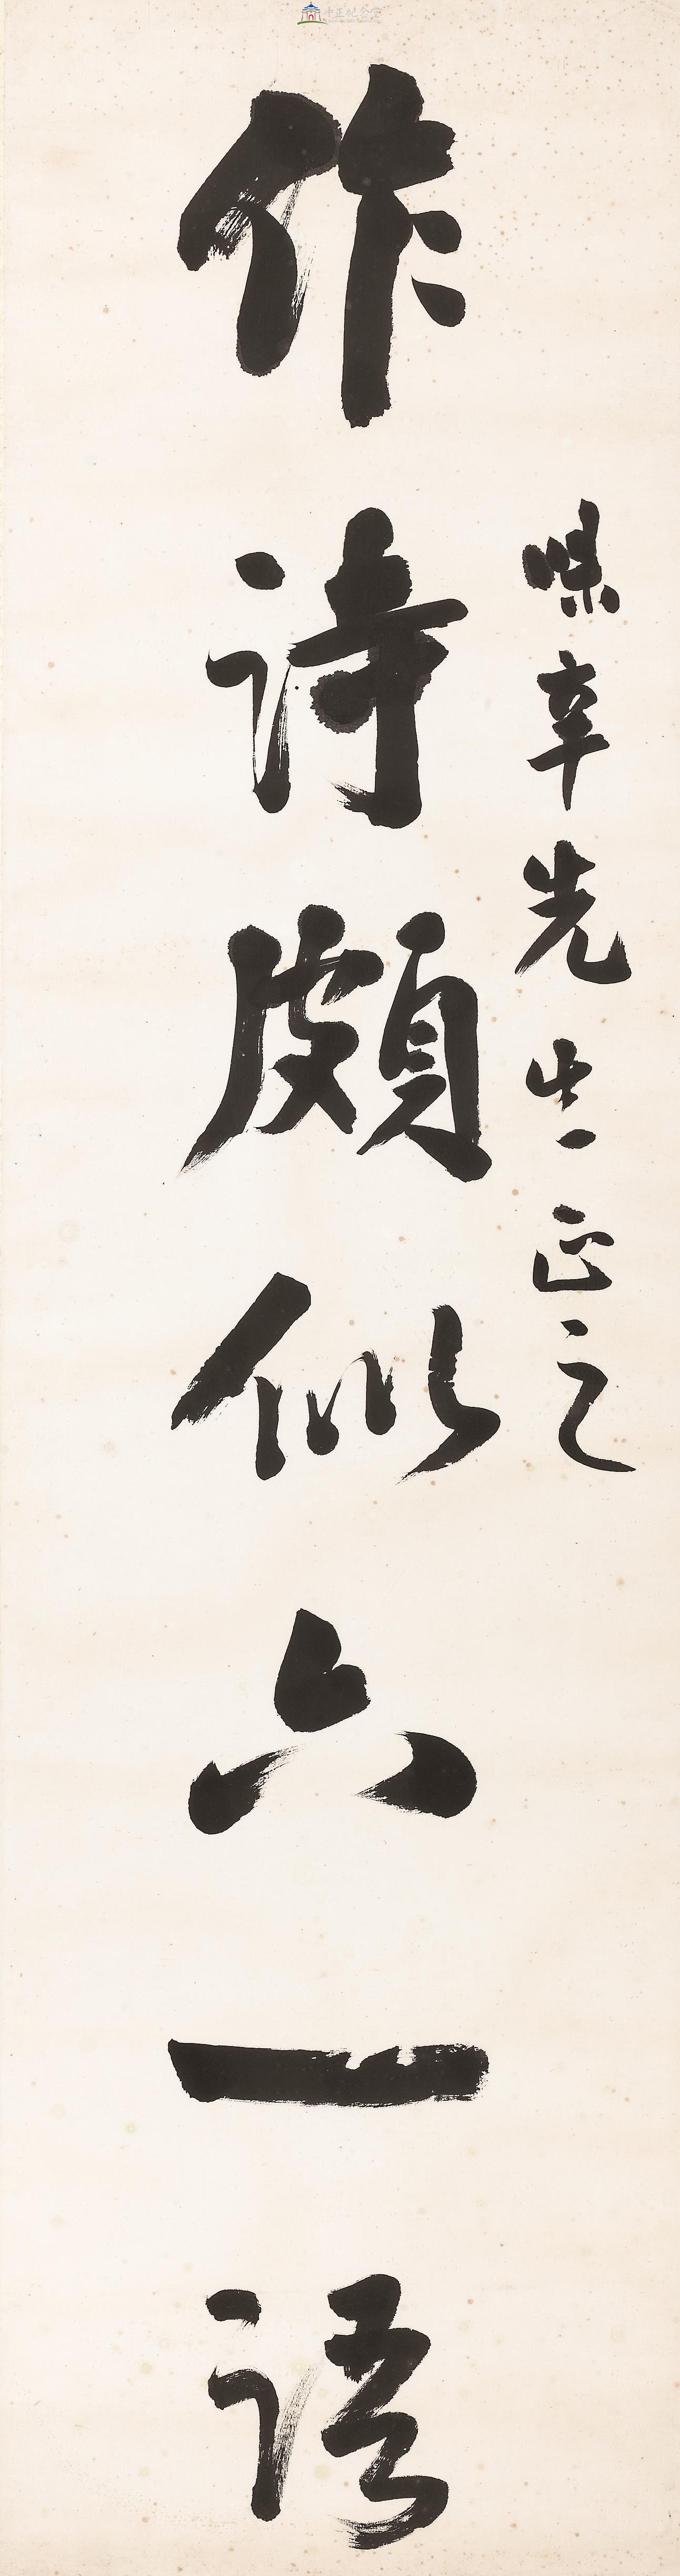 中正紀念堂
味辛先生正之
作詩頗似六一語